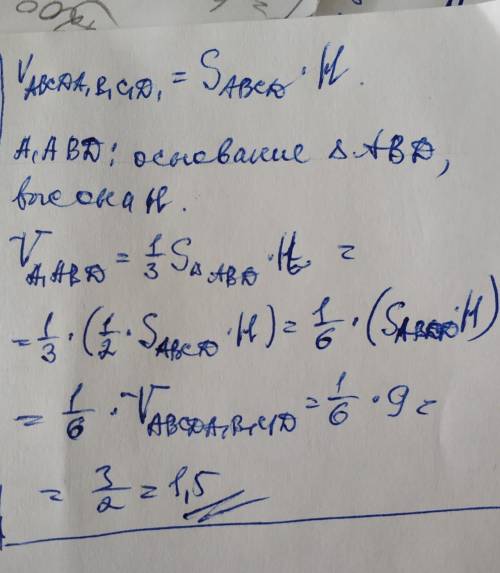 V_ABCDA₁B₁C₁D₁ = S_ABCD · H.
A₁ABD: основание Δ ABD,
высота H.
V_A₁ABD = 1/3 S_Δ ABD · H =
= 1/3 · (1/2 · S_ABCD · H) = 1/6 · (S_ABCD · H)
= 1/6 · V_ABCDA₁B₁C₁D = 1/6 · 9 =
= 3/2 = 1,5